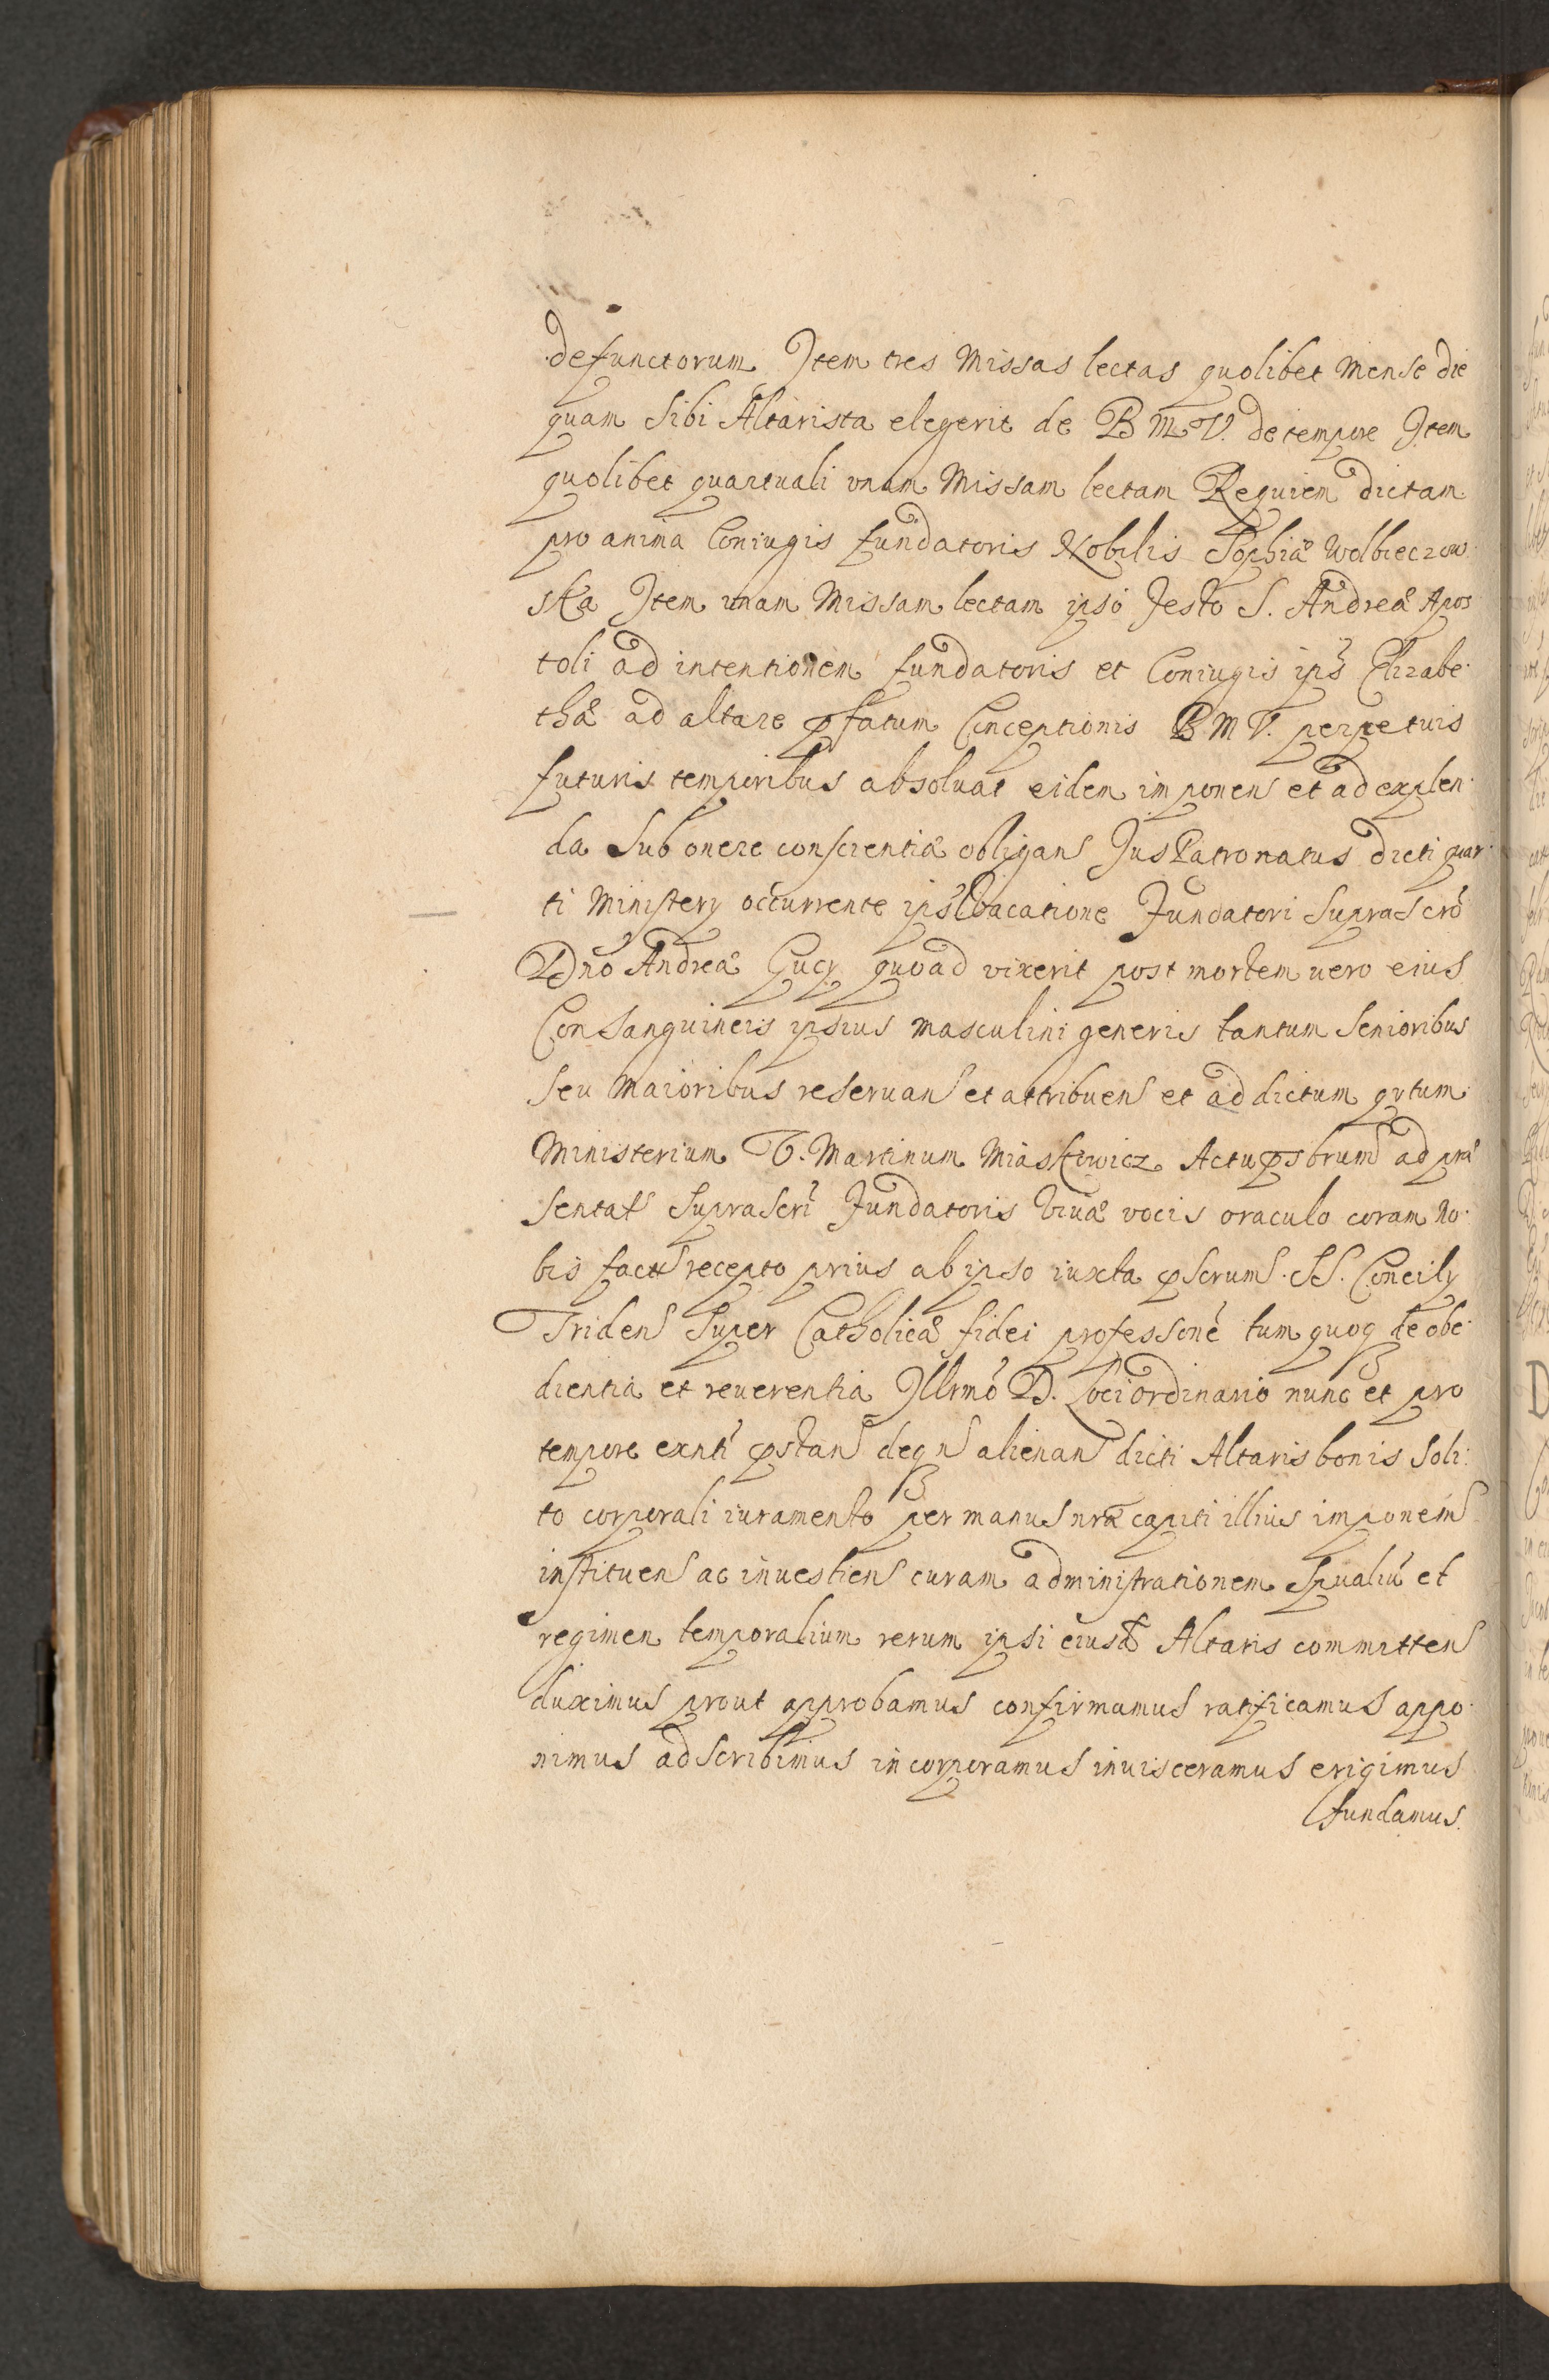 defunctorum Item tres Missas lectas quolibet Mense die
quam sibi Altarista elegerit de B M V. de tempore Item
quolibet quartuali unam Missam lectam Requiem dictam
pro anima Coniugis fundatoris Nobilis Sophiæ Wolbieczow
ska Item unam Missam lectam ipso Festo S. Andreæ Apos
toli ad intentionem fundatoris et Coniugis ips Elizabe
thæ ad altare pfatum Conceptionis B M V. perpetuis
futuris temporibus absoluat eidem imponens et ad explen
da sub onere conscientiæ obligans Jus Patronatus dicti quar
ti Ministery occurrente ips vacatione Fundatori suprascrõ
Dño Andreæ Gucy quoad vixerit post mortem vero eius
Consanguineis ipsius masculini generis tantum senioribus
seu maioribus reseruans et attribuens et ad dictum qrtum
Ministerium V. Martinum Miaskowicz Actu psbrum ad præ
sentat suprascri Fundatoris vivæ vocis oraculo coram No
bis fact recepto prius ab ipso iuxta pscrum SS. Concily
Triden super Catholicæ fidei professionẽ tum quoq de obe
dientia et reuerentia Illrmo D. Loci ordinario nunc et pro
tempore exnti pstan deq n alienan dicti Altaris bonis soli
to corporali iuramento per manus nrã capiti illius imponem
instituens ac inuestiens curam administrationem spualiũ et
regimen temporalium rerum ipsi eiusd Altaris committens
duximus prout approbamus confirmamus ratificamus appo
nimus adscribimus incorporamus inuisceramus erigimus
fundamus.